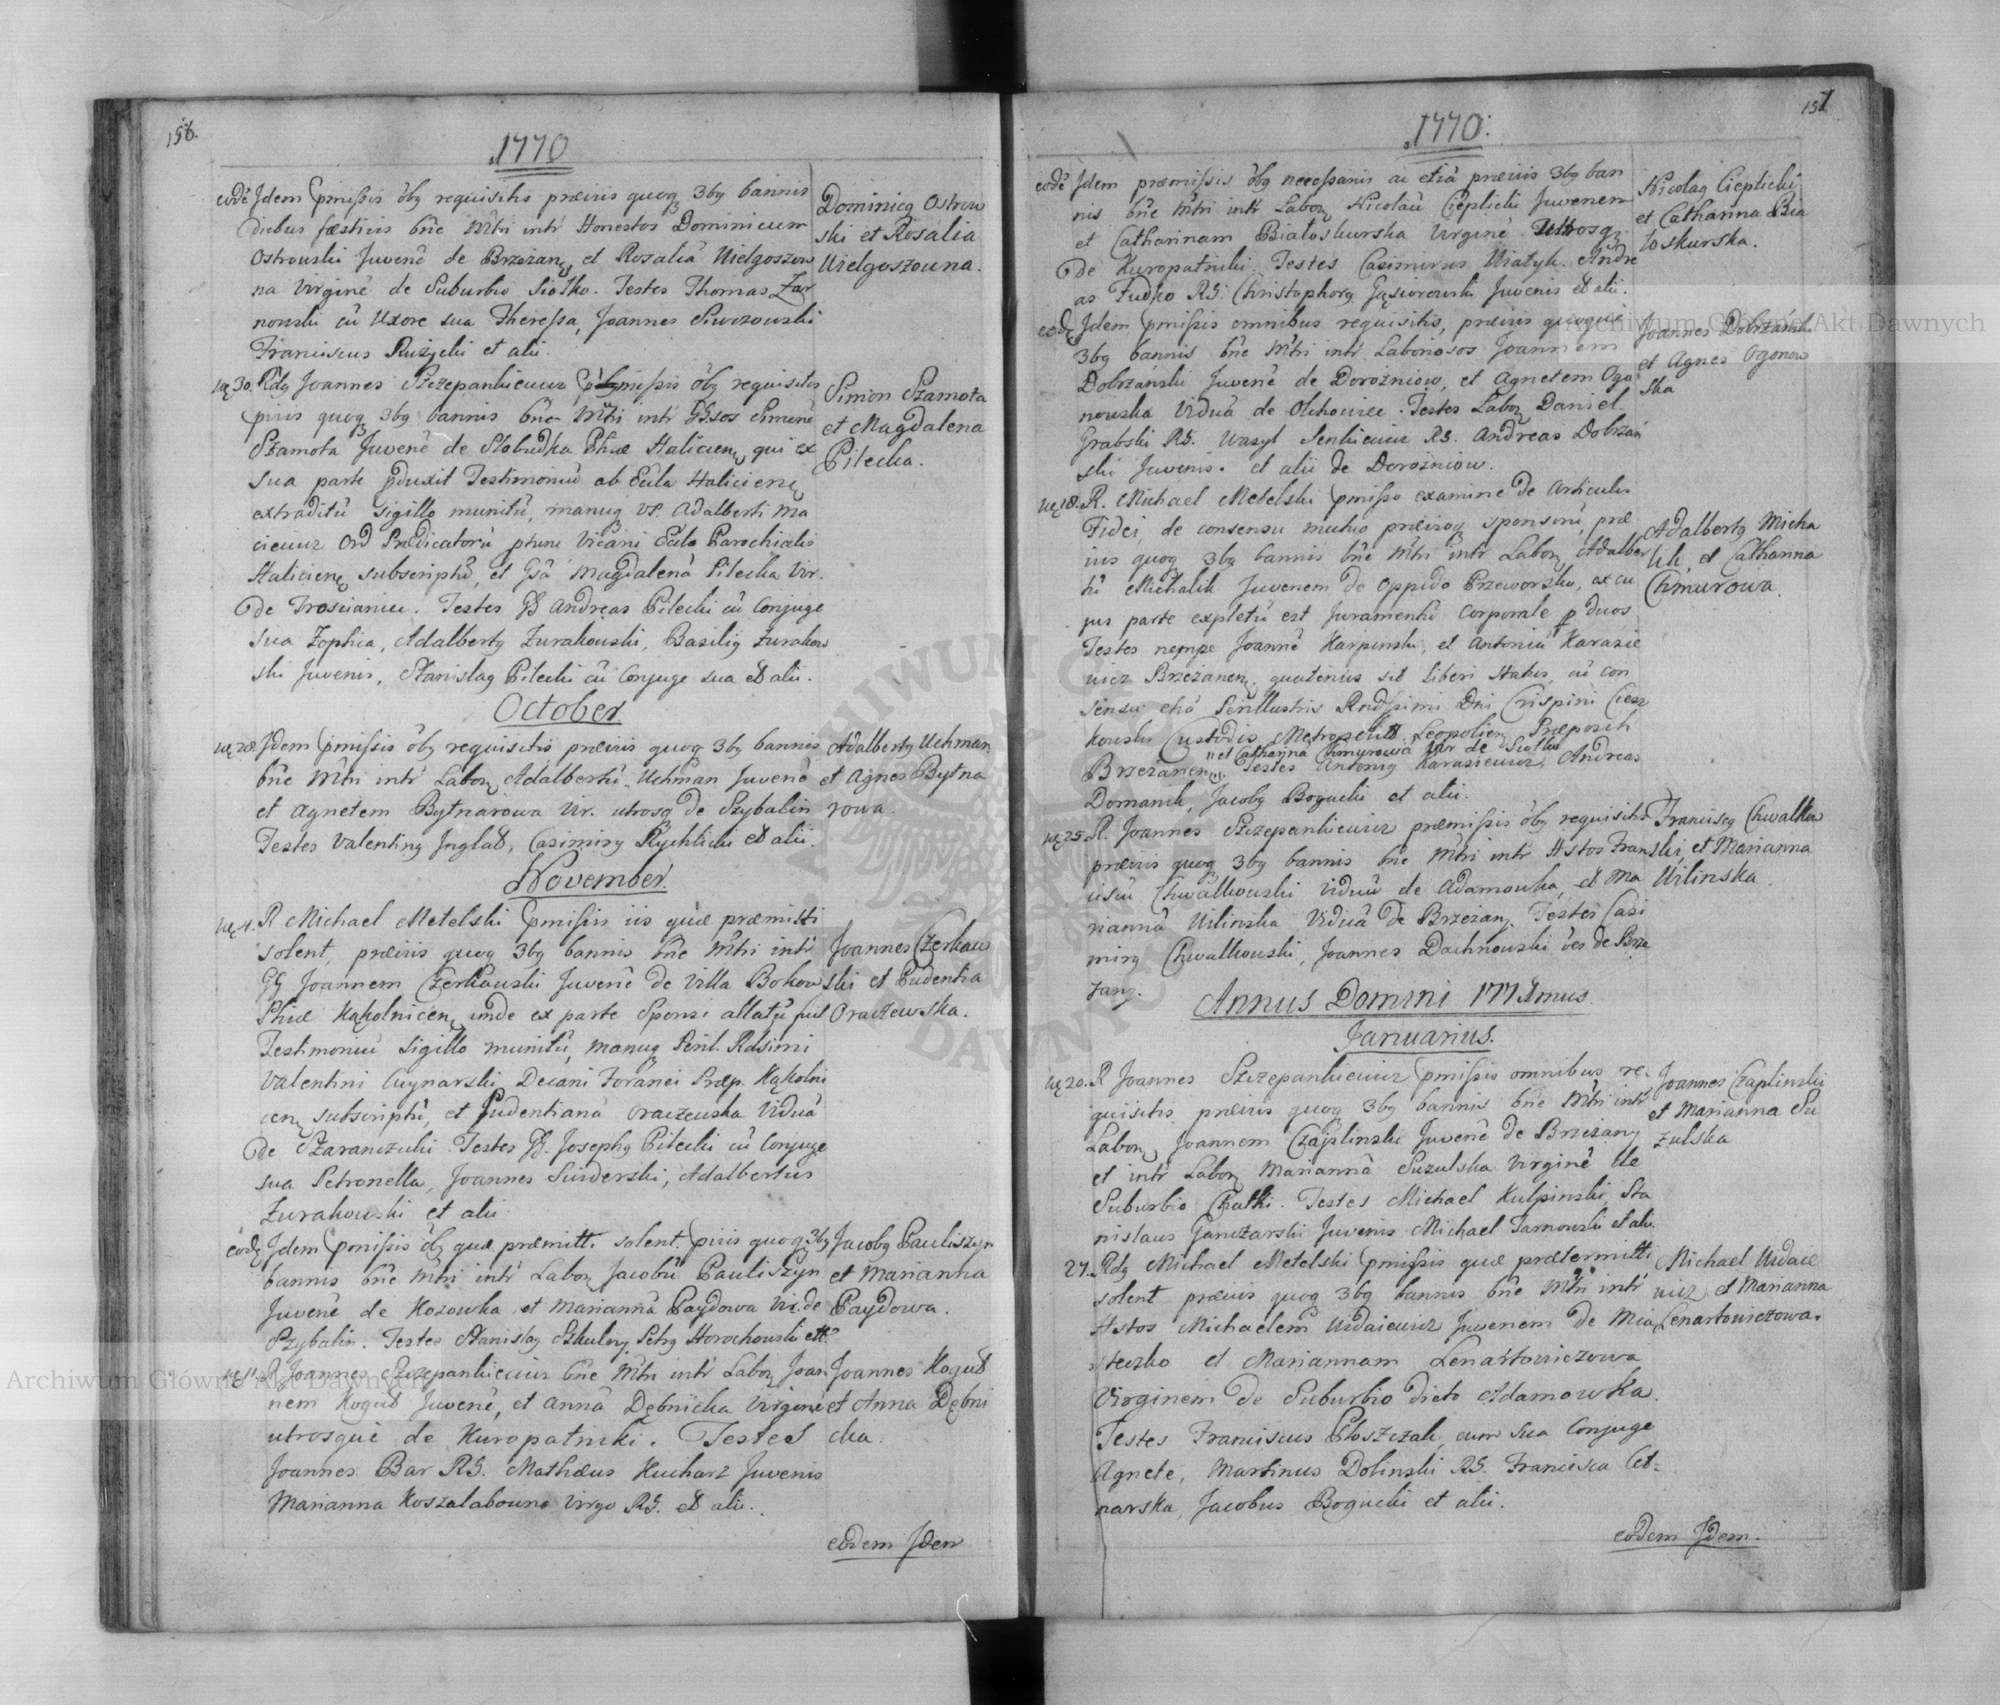 156.
1770
eodē Idem pmissis ōbq requisitis præviis quoq 3bq bannis
diebus fæstivis bñe Mtri intr Honestos Dominicum
Ostrowski Juvenē de Brzezanÿ et Rosaliā Wielgoszow
na Virginē de Suburbio Siołko. Testes Thomas Żar
nowski cū Uxore sua Theressa, Joannes Siwozowski
Franciscus Ruzycki et alii.
Dominicq Ostrow
ski et Rosalia
Wielgoszowna.
30. Rdq Joannes Szczepankiewicz pmissis ōbq requisitis
piis quoq 3bq bannis bñe Mtri intr GGsos Simonē
Szamota Juvenē de Slobudka Phiæ Haliciens qui ex
sua parte pduxit Testimoniū ab Ecla Haliciensi
extraditū sigillo munitū, manuq VP. Adalberti Ma
ciewicz Ord Prædicatorū ptunc Vicarii Ecla Parochialis
Haliciens subscriptū, et Gsā Magdalenā Pilecka Vir.
de Troscianiec. Testes GG Andreas Pilecki cū Conjuge
sua Zophia, Adalbertq Zurakowski, Basiliq Zurakow
ski Juvenis, Stanislaq Pilecki cū Conjuge sua et alii.
Simon Szamota
et Magdalena
Pilecka.
October
28. Idem pmissis ōbq requisitis præviis quoq 3bq bannis
bñe Mtri intr Labor Adalbertū Uchman Juvenē
et Agnetem Bytnarowa Vir. utrosq de Szybalin
Testes Valentinq Inglat, Casimirq Rychlicki et alii.
Adalbertq Uchman
et Agnes Bytna
rowa.
November
4. R Michael Metelski pmissis iis quæ præmitti
solent, præviis quoq 3bq bannis bñe Mtri intr
GG Joannem Czerkawski Juvenē de Villa Bokow
Phiæ Kąkolnicens unde ex parte Sponsi allatū fuit
Testimoniū sigillo munitū, manuq Peril. Rdsimi
Valentini Cuynarski Decani Foranei Præp. Kąkolni
cens subscriptū, et Pudentianā Oraczewska Viduā
de Szaranczuki. Testes GG. Josephq Pilecki cū Conjuge
sua Petronella, Joannes Swiderski, Adalbertus
Zurakowski et alii.
Joannes Czerkaw
ski et Pudentia
Oraczewska.
eodē Idem pmissis ōbq quæ præmitt. solent. piis quoq 3bq
bannis bñe Mtri intr Labor Jacobū Pauliszyn
Juvenē de Kozowka et Mariannā Paydowa Vir. de
Szybalin. Testes Stanislaq Szkulny Petrq Horochowski ett
Jacobq Pauliszyn
et Marianna
Paydowa.
11. R Joannes Szczepankiewicz bñe Mtri intr Labor Joan
nem Kogut Juvenē, et Annā Dębnicka Virginē
utrosque de Kuropatniki. Testes
Joannes Bar RS. Mathæus Kucharz Juvenis
Marianna Koszalabowna Virgo RS. et alii.
Joannes Kogut
et Anna Dębni
cka.
eodem Idem
157
1770.
eodē Idem præmissis ōbq necessariis ac etiā præviis 3bq ban
nis bñe Mtri intr Labor Nicolaū Cieplicki Juvenem
et Catharinam Białoskurska Virginē Utrosq
de Kuropatniki. Testes Casimirus Wiatyk. Andre
as Fudko RS. Christophorq Gąsiorowski Juvenis et alii.
Nicolaq Cieplicki
et Catharina Bia
łoskurska.
eodē Idem pmissis omnibus requisitis, præviis quoque
3bq bannis bñe Mtri intr Laboriosos Joannem
Dobrzański Juvenē de Dorożniow, et Agnetem Ogo
nowska Viduā de Olchowiec. Testes Labor Daniel
Grabski RS. Wasyl Senkiewicz RS. Andreas Dobrzań
ski Juvenis. et alii de Dorożniow.
Joannes Dobrzański
et Agnes Ogonow
ska
18. R. Michael Metelski pmisso examine de Articulis
Fidei, de consensu mutuo præviorq sponsorū, præ
viis quoq 3bq bannis bñe Mtri intr Labor Adalber
tū Michalik Juvenem de Oppido Przeworsko, ex cu
jus parte expletū est Juramentū Corporale p duos
Testes nempe Joannē Karpinski, et Antoniū Karasie
wicz Brzezanens, quatenus sit liberi status, cū con
sensu etiā Perillustris Rndssimi Dni Crispini Ciesz
kowski Custodis Metropolit. Leopolien Præpositi
et Catharinā Chmurowa Vir de Siolko
Brzezanens. Testes Antoniq Karasiewicz, Andreas
Domanik, Jacobq Bogucki et alii.
Adalbertq Micha
lik, et Catharina
Chmurowa.
25. R. Joannes Szczepankiewicz præmissis ōbq requisitis
præviis quoq 3bq bannis bñe Mtri intr Hstos Fran
ciscū Chwalkowski Viduū de Adamowka, et Ma
riannā Wilinska Viduā de Brzezanÿ. Testes Casi
mirq Chwalkowski, Joannes Dachnowski oēs de Brze
zanÿ.
Franciscq Chwalkow
ski, et Marianna
Wilinska.
Annus Domini 1771mus.
Januarius.
20. R Joannes Szczepankiewicz pmissis omnibus re-
quisitis præviis quoq 3bq bannis bñe Mtri intr
Labor Joannem Czaplinski Juvenē de Brzezanÿ
et intr Labor Mariannā Suzulska Virginē de
Suburbio Chatki. Testes Michael Kulpinski, Sta
nislaus Ganczarski Juvenis Michael Tarnowski et alii.
Joannes Czaplinski
et Marianna Su
zulska
27. Rdq Michael Metelski pmissis quæ prætermitti
solent præviis quoq 3bq bannis bñe Mtri intr
Hstos Michaelem Widaiewicz Juvenem de Mia
steczko et Mariannam Lenartowiczowa
Virginem de Suburbio dicto Adamowka.
Testes Franciscus Płoszczak, cum sua Conjuge
Agnete, Martinus Dolinski RS. Francisca Cet-
narska, Jacobus Bogucki et alii.
Michael Widaie
wicz et Marianna
Lenartowiczowa.
eodem Idem.
Archiwum Główne Akt Dawnych
Archiwum Główne Akt Dawnych